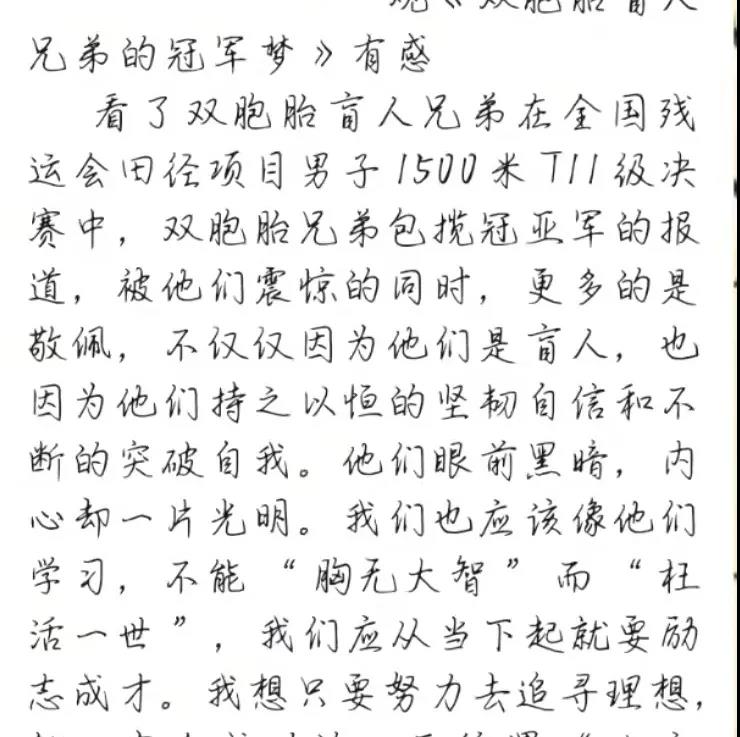 观《双胞胎盲人
兄弟的冠军梦》有感
看了双胞胎盲人兄弟在全国残
运会田径项目男子1500米T11级决
赛中，双胞胎兄弟包揽冠亚军的报
道，被他们震惊的同时，更多的是
敬佩，不仅仅因为他们是盲人，也
因为他们持之以恒的坚韧自信和不
断的突破自我。他们眼前黑暗，内
心却一片光明。我们也应该像他们
学习，不能“胸无大智”而“枉
活一世”，我们应从当下起就要励
志成才。我想只要努力去追寻理想，